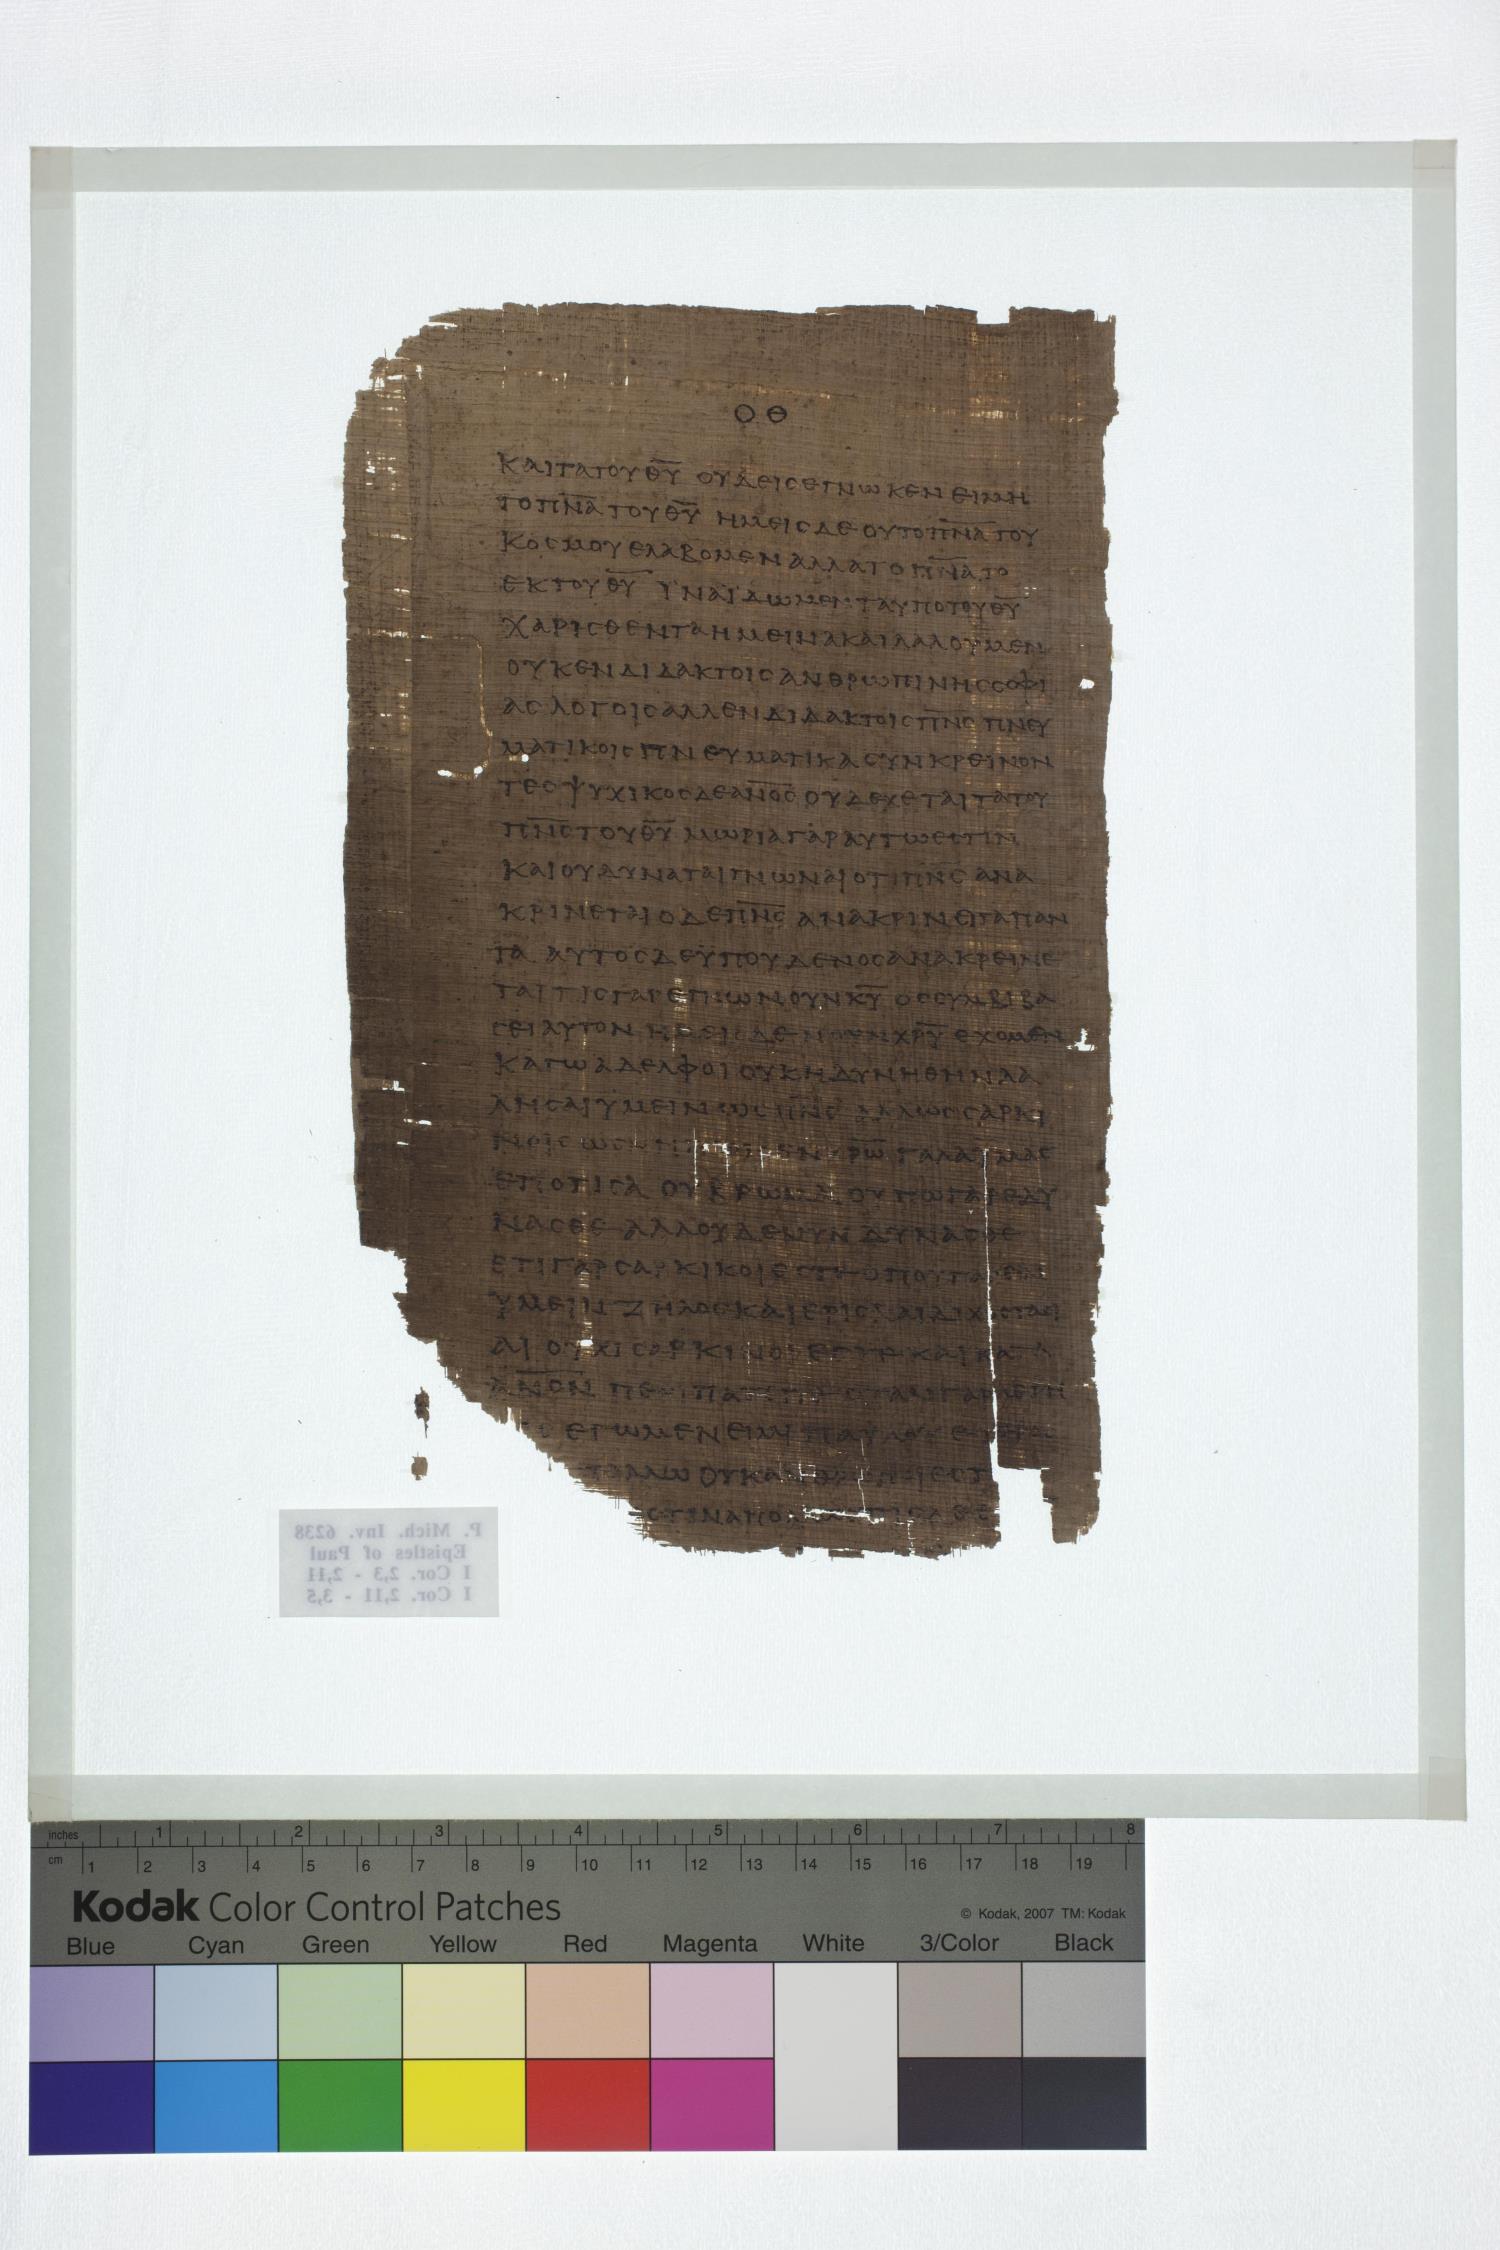 Ο Θ
ΚΑΙΤΑΤΟΥΘΥ ΟΥΔΕΙΣΕΓΝΩΚΕΝ ΕΙΜΗ
ΤΟΠΝΑ ΤΟΥΘΥ ΗΜΕΙΣΔΕ ΟΥΤΟΠΝΑ ΤΟΥ
ΚΟΣΜΟΥ ΕΛΑΒΟΜΕΝ ΑΛΛΑΤΟ ΠΝΑ ΤΟ
ΕΚΤΟΥ ΘΥ ΥΝΑΪΔΩΜΕΝ ΤΑΥΠΟΤΟΥΘΥ
ΧΑΡΙΣΘΕΝΤΑ ΗΜΕΙΝ ΑΚΑΙΛΑΛΟΥΜΕΝ
ΟΥΚΕΝ ΔΙΔΑΚΤΟΙΣ ΑΝΘΡΩΠΙΝΗΣ ΣΟΦΙ
ΑΣ ΛΟΓΟΙΣ ΑΛΛΕΝ ΔΙΔΑΚΤΟΙΣ ΠΝΣ ΠΝΕΥ
ΜΑΤΙΚΟΙΣ ΠΝΕΥΜΑΤΙΚΑ ΣΥΝΚΡΕΙΝΟΝ
ΤΕΣ ΨΥΧΙΚΟΣ ΔΕ ΑΝΟΣ ΟΥ ΔΕΧΕΤΑΙ ΤΑ ΤΟΥ
ΠΝΣ ΤΟΥ ΘΥ ΜΩΡΙΑ ΓΑΡ ΑΥΤΩ ΕΣΤΙΝ
ΚΑΙ ΟΥ ΔΥΝΑΤΑΙ ΓΝΩΝΑΙ ΟΤΙ ΠΝΣ ΑΝΑ
ΚΡΙΝΕΤΑΙ Ο ΔΕ ΠΝΣ ΑΝΑΚΡΙΝΕΙ ΤΑ ΠΑΝ
ΤΑ ΑΥΤΟΣ ΔΕ ΫΠ ΟΥΔΕΝΟΣ ΑΝΑΚΡΕΙΝΕ
ΤΑΙ ΤΙΣ ΓΑΡ ΕΓΝΩ ΝΟΥΝ ΚΥ ΟΣ ΣΥΝΒΙΒΑ
ΣΕΙ ΑΥΤΟΝ ΗΜΕΙΣ ΔΕ ΝΟΥΝ ΧΡΥ ΕΧΟΜΕΝ
ΚΑΓΩ ΑΔΕΛΦΟΙ ΟΥΚ ΗΔΥΝΗΘΗΝ ΛΑ
ΛΗΣΑΙ ΥΜΕΙΝ ΩΣ ΠΝΣ ΑΛΛ ΩΣ ΣΑΡΚΙ
ΝΟΙΣ ΩΣ ΕΝ ΧΡΩ ΓΑΛΑ ΥΜΑΣ
ΕΠΟΤΙΣΑ ΟΥ ΒΡΩΜΑ ΟΥΠΩ ΓΑΡ ΕΔΥ
ΝΑΣΘΕ ΑΛΛ ΟΥΔΕ ΝΥΝ ΔΥΝΑΣΘΕ
ΕΤΙ ΓΑΡ ΣΑΡΚΙΚΟΙ ΕΣΤΕ ΟΠΟΥ ΓΑΡ ΕΝ
ΥΜΕΙΝ ΖΗΛΟΣ ΚΑΙ ΕΡΙΣ ΚΑΙ ΔΙΧΟΣΤΑΣΙ
ΑΙ ΟΥΧΙ ΣΑΡΚΙΝΟΙ ΕΣΤΕ ΚΑΙ ΚΑΤΑ
ΑΝΟΝ ΠΕΡΙΠΑΤΕΙΤΕ ΟΤΑΝ ΓΑΡ ΛΕΓΗ
ΕΓΩ ΜΕΝ ΕΙΜΙ ΠΑΥΛΟΥ
ΟΥΚ
ΕΣΤΙΝ ΑΠΟΛΛΩΣ
P. Mich. Inv. 6238
Epistles of Paul
I Cor. 2,3 - 2,11
I Cor. 2,11 - 3,5
inches 1 2 3 4 5 6 7 8
cm 1 2 3 4 5 6 7 8 9 10 11 12 13 14 15 16 17 18 19
Kodak Color Control Patches
© Kodak, 2007 TM: Kodak
Blue Cyan Green Yellow Red Magenta White 3/Color Black